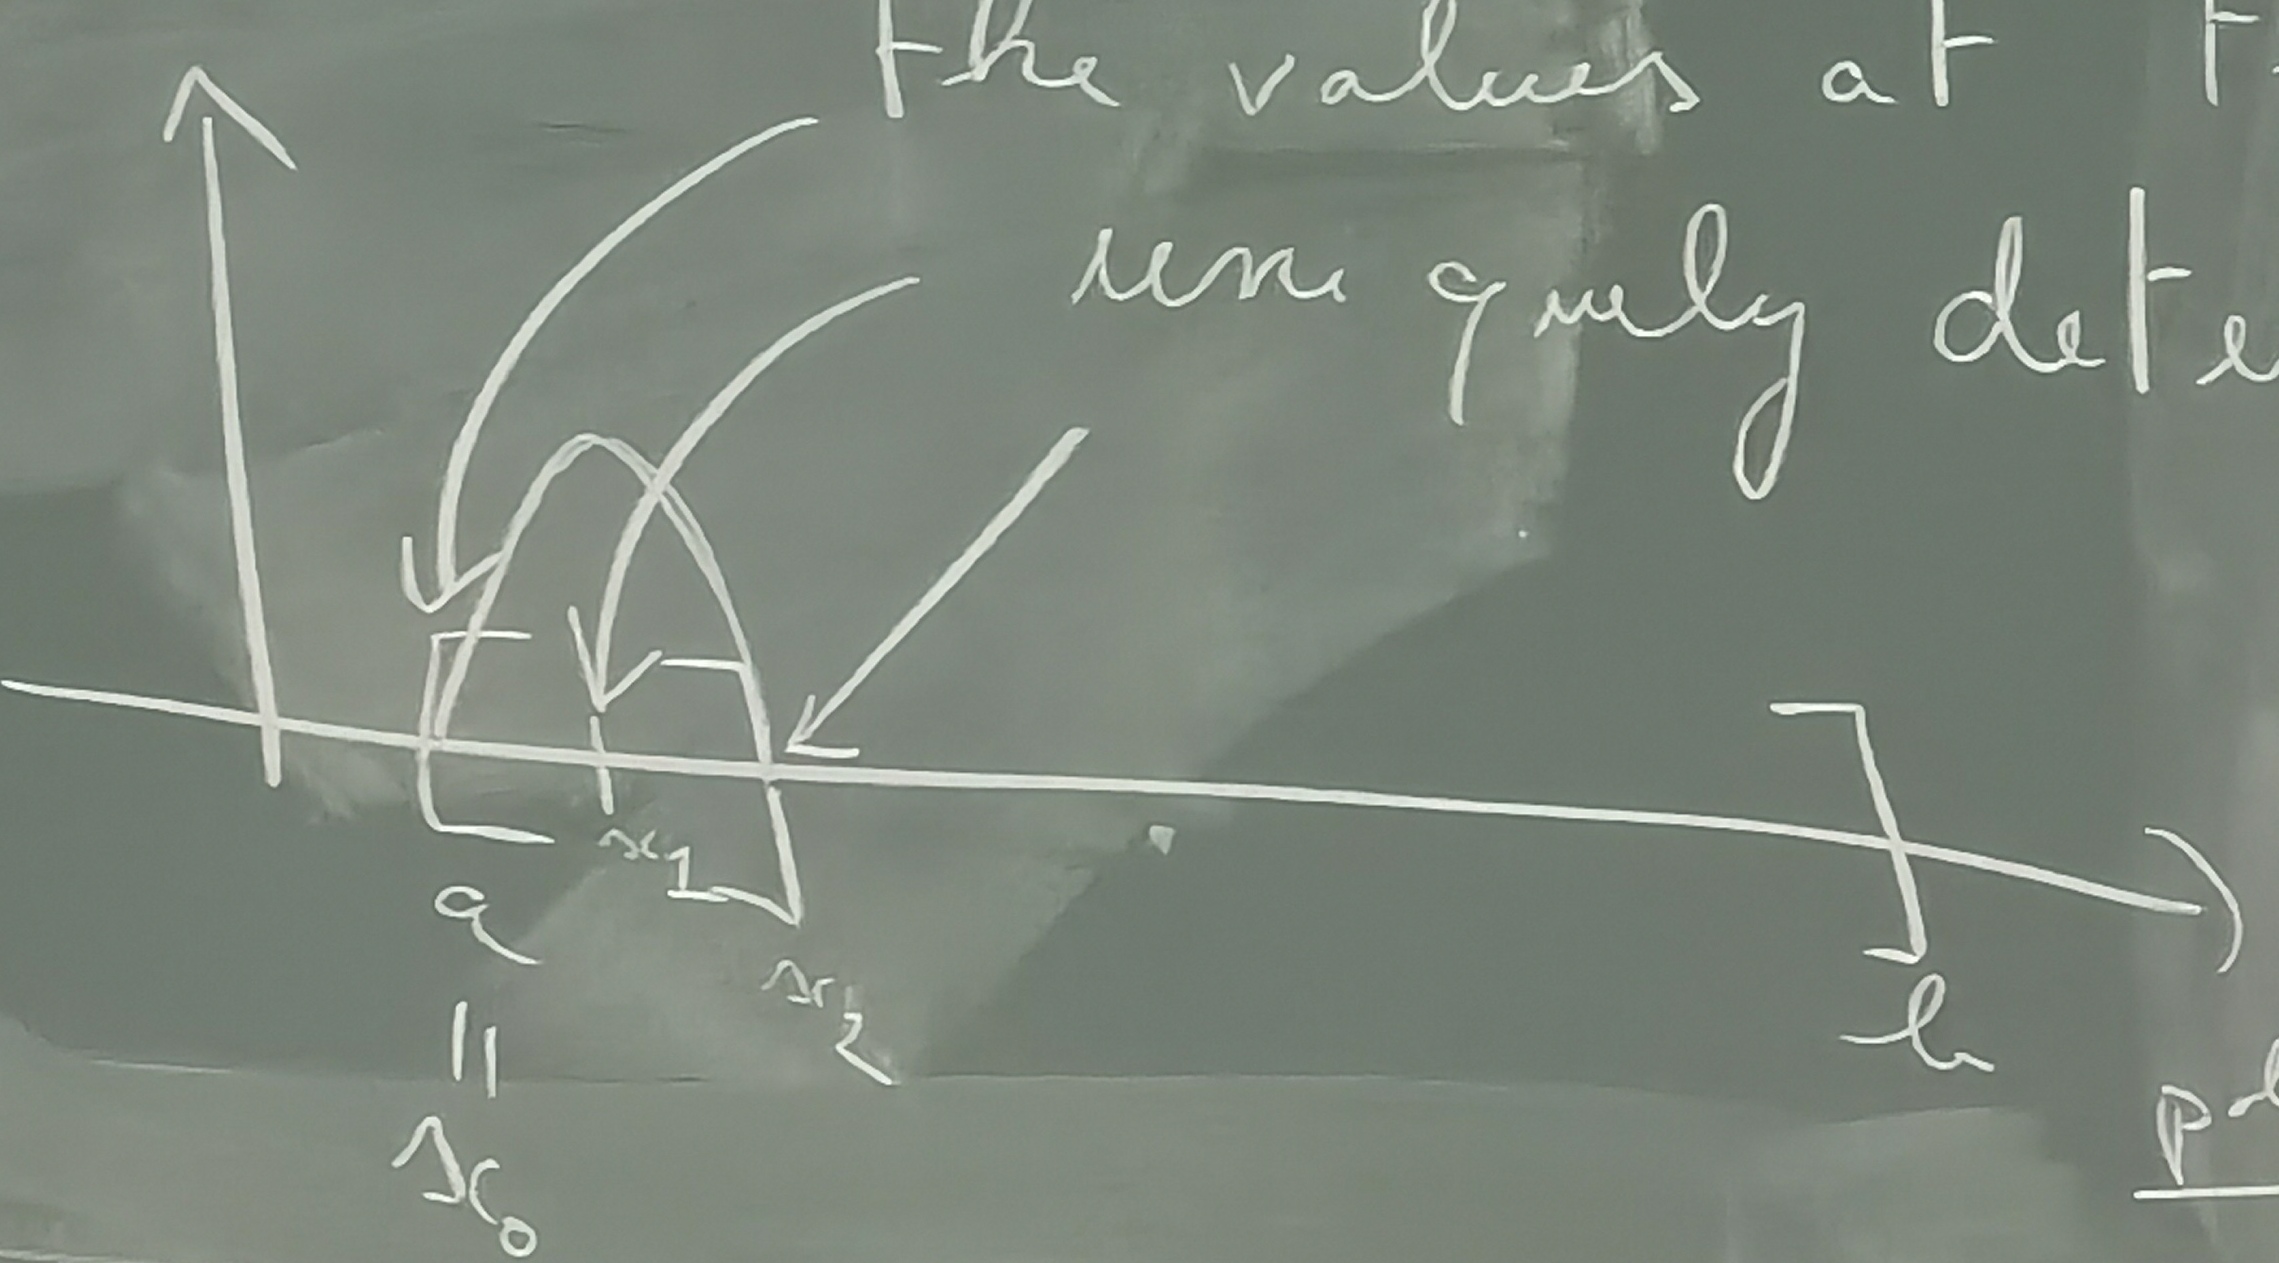 the values at
uniquely dete
x₁
a
x₂
b
||
x₀